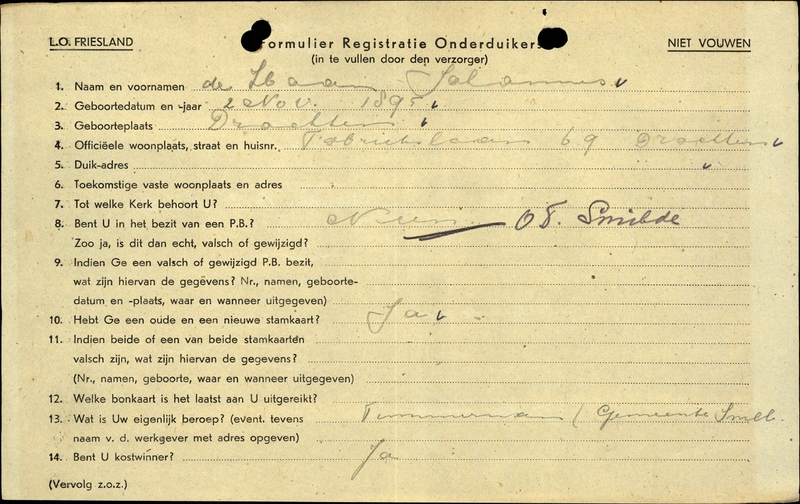 L.O. FRIESLAND
Formulier Registratie Onderduikers
NIET VOUWEN
(in te vullen door den verzorger)
1. Naam en voornamen de Haan Johannes
2. Geboortedatum en -jaar 2 Nov. 1895
3. Geboorteplaats Drachten
4. Officiëele woonplaats, straat en huisnr. Fabriekslaan 69 Drachten
5. Duik-adres
6. Toekomstige vaste woonplaats en adres
7. Tot welke Kerk behoort U?
8. Bent U in het bezit van een P.B.? Neen OT. Smilde
Zoo ja, is dit dan echt, valsch of gewijzigd?
9. Indien Ge een valsch of gewijzigd P.B. bezit,
wat zijn hiervan de gegevens? Nr., namen, geboorte-
datum en -plaats, waar en wanneer uitgegeven)
10. Hebt Ge een oude en een nieuwe stamkaart? Ja
11. Indien beide of een van beide stamkaarten
valsch zijn, wat zijn hiervan de gegevens?
(Nr., namen, geboorte, waar en wanneer uitgegeven)
12. Welke bonkaart is het laatst aan U uitgereikt?
13. Wat is Uw eigenlijk beroep? (event. tevens Timmerman / Gemeente Smll.
naam v. d. werkgever met adres opgeven)
14. Bent U kostwinner? Ja
(Vervolg z.o.z.)